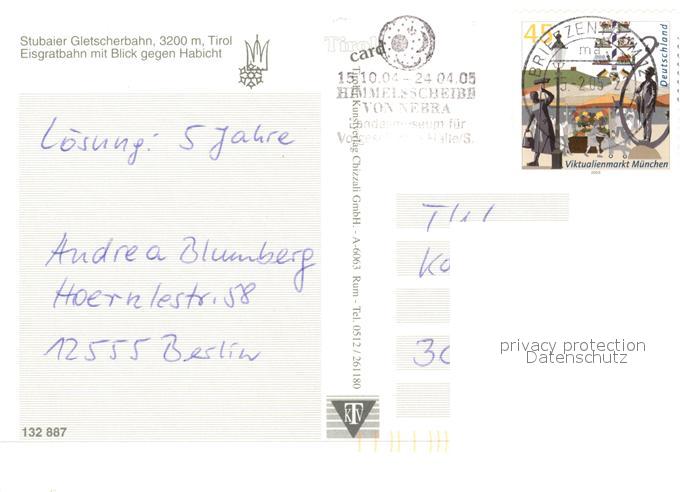 Stubaier Gletscherbahn, 3200 m, Tirol
Eisgratbahn mit Blick gegen Habicht
Lösung: 5 Jahre
Andrea Blumberg
Hoernlestr. 58
12555 Berlin
132 887
Tirol
card
Tiroler Kunstverlag Chizzali GmbH. - A-6063 Rum - Tel. 0512 / 261180
KTV
15.10.04 - 24.04.05
HIMMELSSCHEIBE
VON NEBRA
Landesmuseum für
Vorgeschichte Halle/S.
BRIEFZENTRUM
45
Deutschland
Viktualienmarkt München
2003
30
privacy protection
Datenschutz